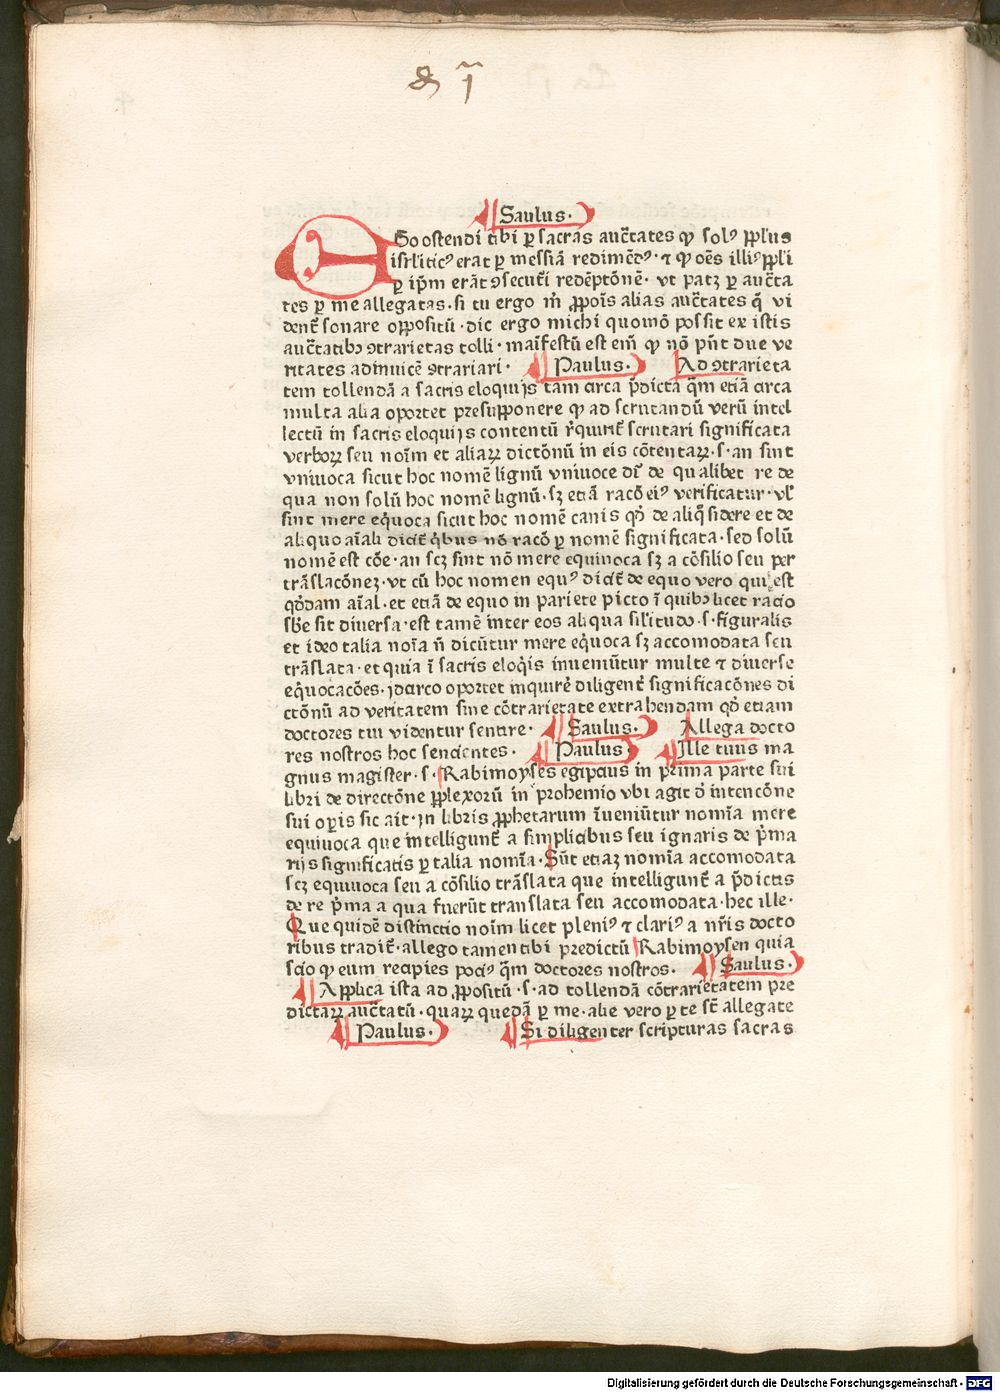 Saulus·
EGo ostendi tibi ꝑ sacras auc̄tates ꝙ solꝰ ꝓplus
isrl̄iticꝰ erat ꝑ messiā redimēdꝰ· ⁊ ꝙ oēs illiꝰ ꝓpli
ꝑ ip̄m erāt ꝯsecuti redēptōnē· vt patꝫ ꝑ aucta
tes ꝑ me allegatas. si tu ergo m̄ ꝓpoīs alias auc̄tates q̄ vi
dent̄ sonare oppositū · dic ergo michi quomō possit ex istis
auctatibꝰ ꝯtrarietas tolli · maīfestū est em̄ ꝙ nō pn̄t due ve
ritates adinuicē ꝯtrariari· Paulus· Ad ꝯtrarieta
tem tollendā a sacris eloquijs tam circa p̄dicta q̄m etiā circa
multa alia oportet presupponere ꝙ ad scrutandū verū intel
lectū in sacris eloquijs contentū r̄quirit̄ scrutari significata
verboꝝ seu noīm et aliaꝝ dictōnū in eis cōtentaꝝ· s· an sint
vniuoca sicut hoc nomē lignū vniuoce dr̄ de qualibet re de
qua non solū hoc nomē lignū· sꝫ etiā racō eiꝰ verificatur· vl̄
sint mere eq̄uoca sicut hoc nomē canis qd̄ de aliq̄ sidere et de
aliquo aīali dicit̄ q̄bus nō racō ꝑ nomē significata· sed solū
nomē est cōe· an scꝫ sint nō mere equinoca sꝫ a cōsilio seu per
trāslacōneꝫ· vt cū hoc nomen equꝰ dicit̄ de equo vero qui est
qd̄dam aīal· et etiā de equo in pariete picto ī quibꝰ licet racio
sbē sit diuersa· est tamē inter eos aliqua sil̄itudo· s· figuralis
et ideo talia noīa n̄ dicūtur mere eq̄uoca sꝫ accomodata seu
trāslata· et quia ī sacris eloq̄is inueniūtur multe ⁊ diuerse
eq̄uocacōes· jdarco oportet inquirē diligent̄ significacōnes di
ctōnū ad veritatem sine cōtrarietate extrahendam qd̄ etiam
doctores tui videntur sentire· Saulus· Allega docto
res nostros hoc sencientes· Paulus· Ille tuus ma
gnus magister· s· Rabimoyses egipcius in prima parte sui
libri de directōne ꝓplexorū in prohemio vbi agit d̄ intencōne
sui oꝑis sic ait· jn libris ꝓphetarum īueniūtur nomīa mere
equiuoca que intelligunt̄ a simplicibus seu ignaris de p̄ma
rijs significatis ꝑ talia nomīa· Sūt etiaꝫ nomīa accomodata
scꝫ equiuoca seu a cōsilio trāslata que intelligunt̄ a p̄dictis
de re p̄ma a qua fuerūt translata seu accomodata· hec ille·
Que quidē distinctio noīm licet pleniꝰ ⁊ clariꝰ a nr̄is docto
ribus tradit̄· allego tamen tibi predictū Rabimoysen quia
scio ꝙ eum recipies pociꝰ q̄m doctores nostros. Saulus·
Applica ista ad ꝓpositū· s· ad tollendā cōtrarietatem pre
dictaꝝ auc̄tatū· quaꝝ quedā ꝑ me· alie vero ꝑ te st̄ allegate
Paulus· Si diligenter scripturas sacras
Digitalisierung gefördert durch die Deutsche Forschungsgemeinschaft - DFG